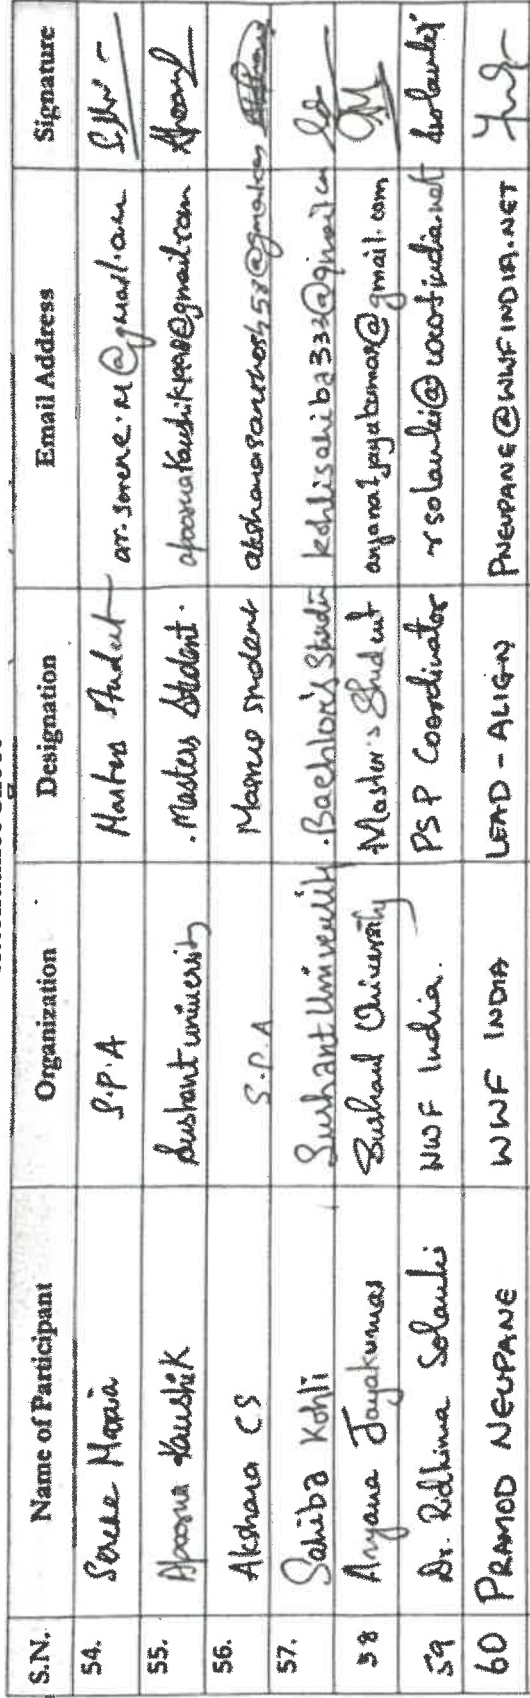 S.N. Name of Participant Organization Designation Email Address Signature
54. Serene Maria S.P.A Masters student ar.serene.m@gmail.com
55. Apoorva Kaushik Sushant university Masters Student.
56. Akshara CS S.P.A Masters student
57. Sahiba Kohli Sushant University Bachlor's Studen kohlisahiba333@gmail.co
58 Anjana Jayakumar Sushant University Master's Student anjanatjayakumar@gmail.com
59 Dr. Ridhima Solanki WWF India. PSP Coordinator rsolanki@wwfindia.net
60 PRAMOD NEUPANE WWF INDIA LEAD - ALIGN PNEUPANE@WWFINDIA.NET